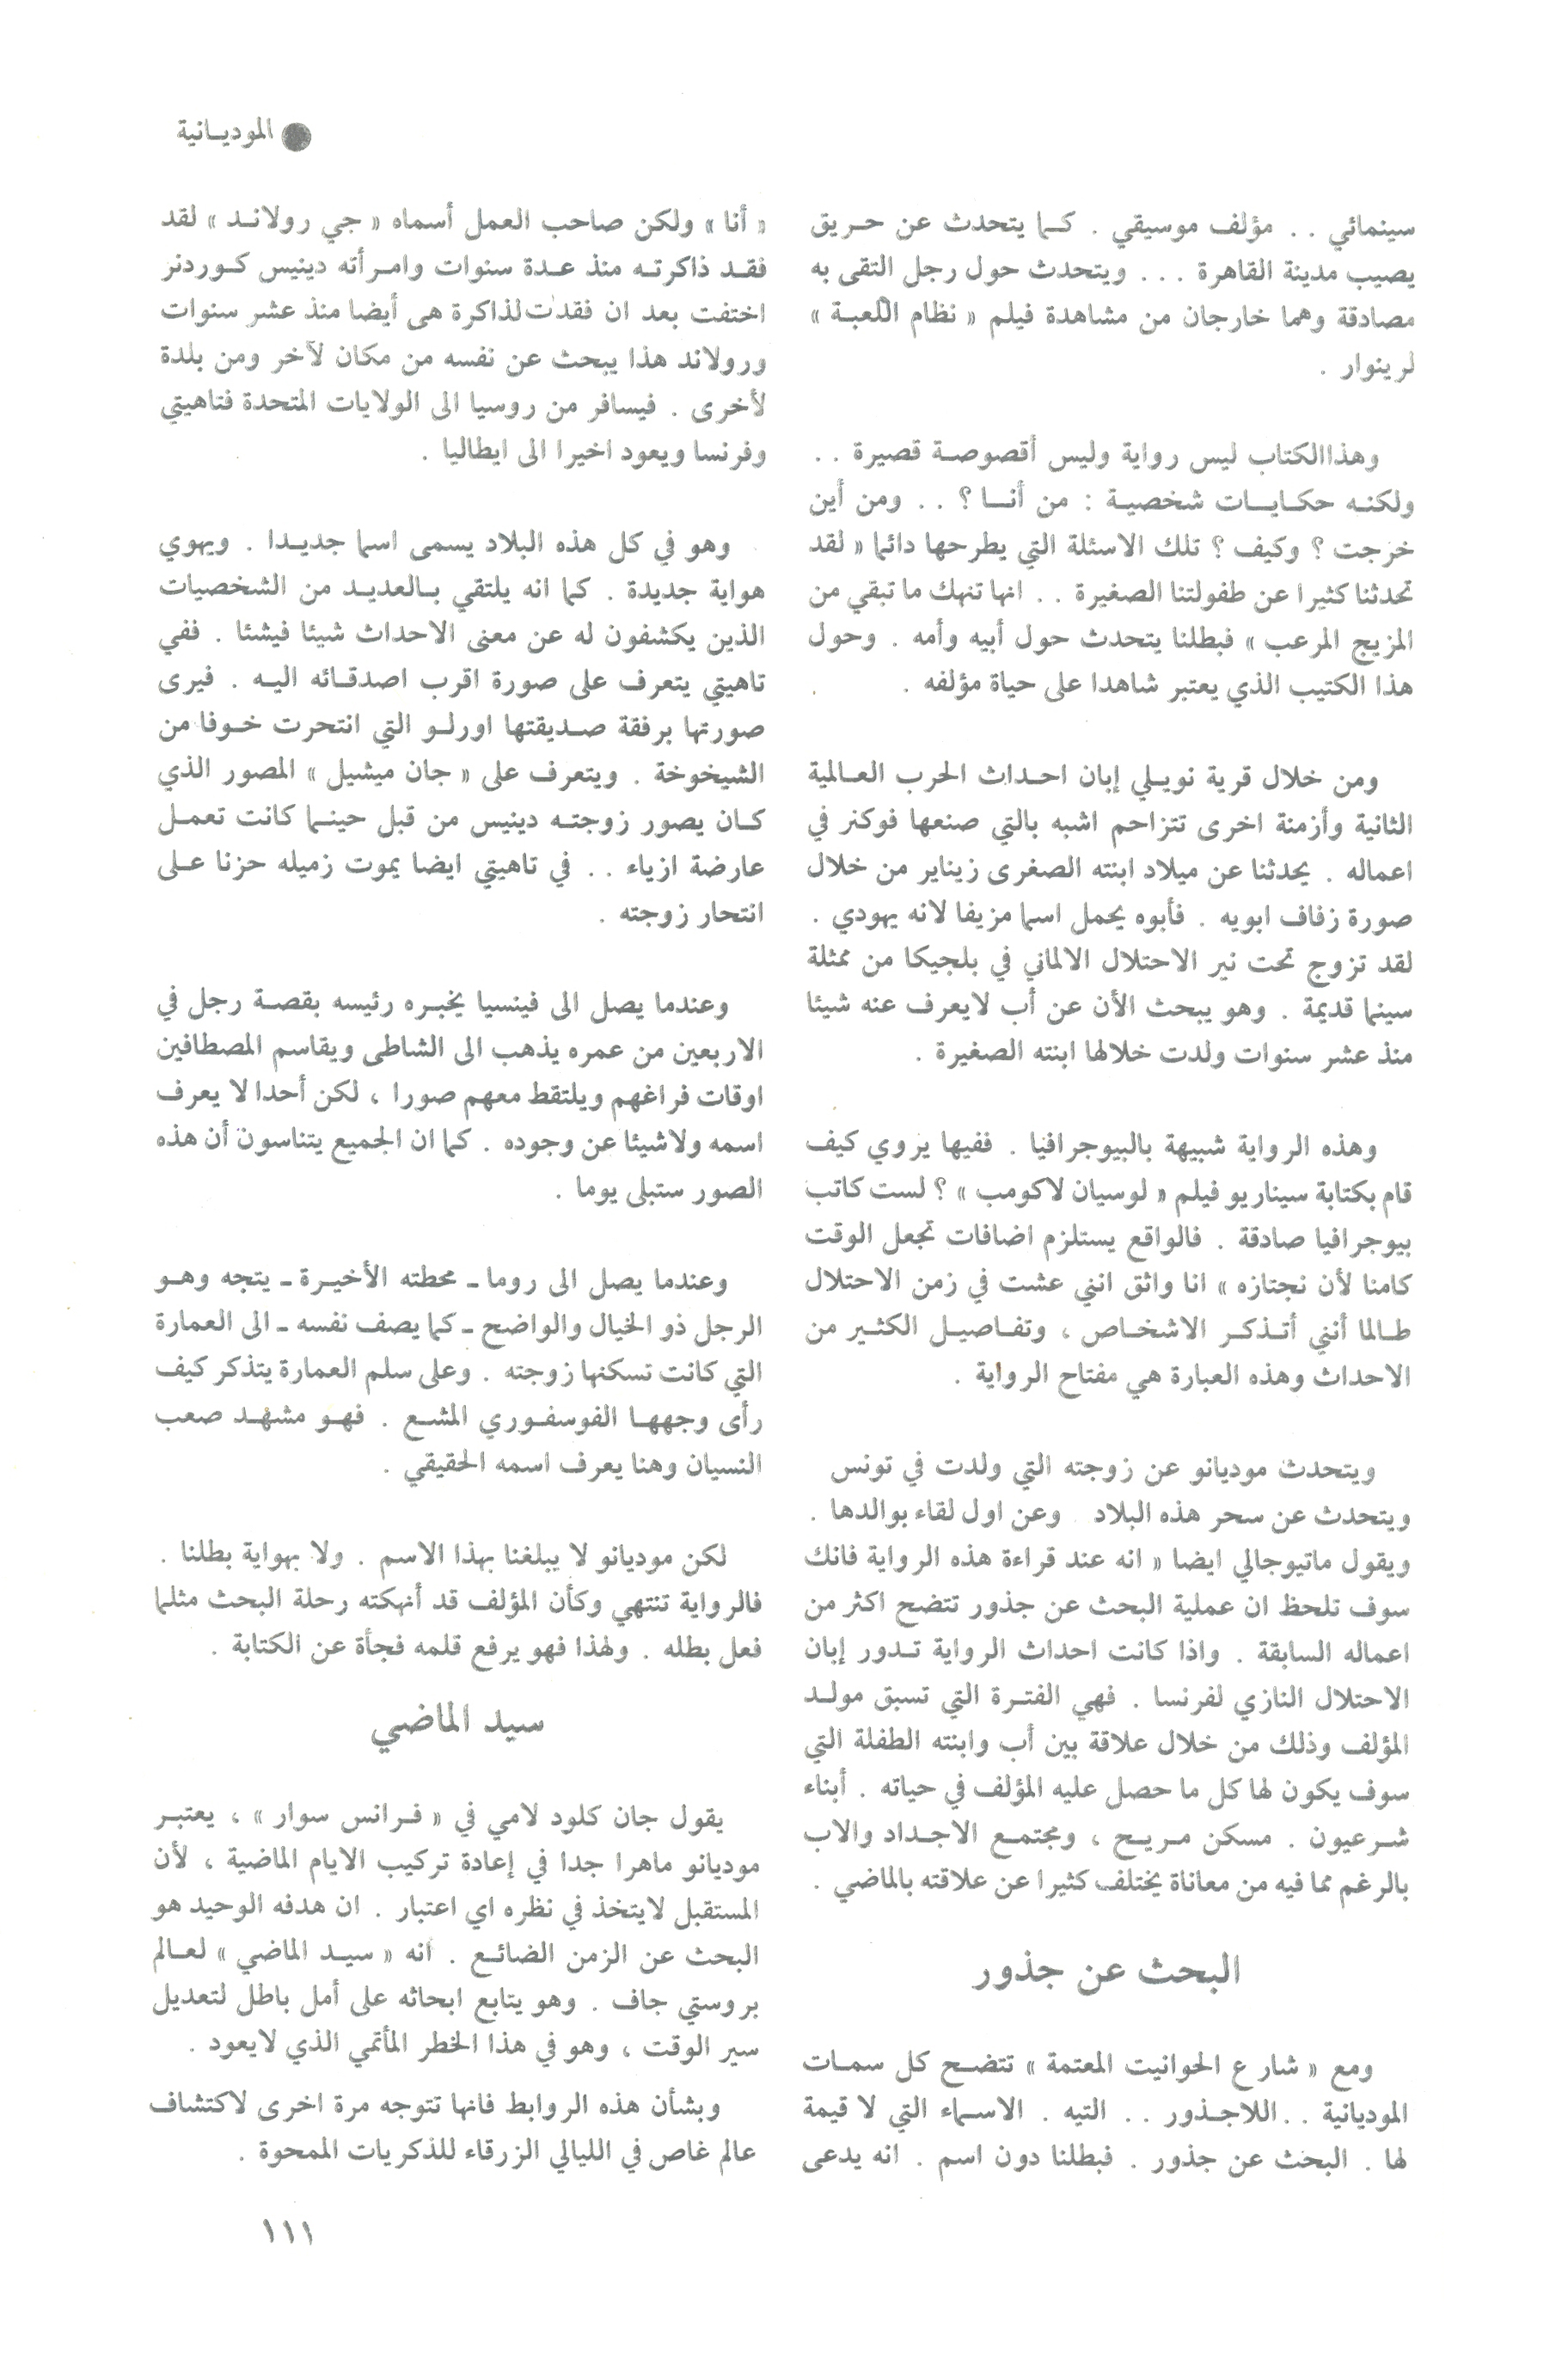 ● الموديـانية
سينمائي . . مؤلف موسيقي . كـما يتحدث عن حـريق
يصيب مدينة القاهرة . . . ويتحدث حول رجل التقى به
مصادقة وهما خارجان من مشاهدة فيلم « نظام اللعبـة »
لرينوار .
وهذاالكتاب ليس رواية وليس أقصوصـة قصيرة . .
ولكنـه حكـايـات شخصيـة : من أنـا ؟ . . ومن أين
خرجت ؟ وكيف ؟ تلك الاسئلة التي يطرحها دائما « لقد
تحدثنا كثيرا عن طفولتنا الصغيرة . . انها تنهك ما تبقي من
المزيج المرعب » فبطلنا يتحدث حول أبيه وأمه . وحول
هذا الكتيب الذي يعتبر شاهدا على حياة مؤلفه .
ومن خلال قرية نويـلي إبان احـداث الحرب العـالمية
الثانية وأزمنة اخرى تتزاحم اشبه بالتي صنعها فوكنر في
اعماله . يحدثنا عن ميلاد ابنته الصغرى زيناير من خلال
صورة زفاف ابويه . فأبوه يحمل اسما مزيفا لانه يهودي .
لقد تزوج تحت نير الاحتلال الالماني في بلجيكا من ممثلة
سينما قديمة . وهو يبحث الأن عن أب لايعرف عنه شيئا
منذ عشر سنوات ولدت خلالها ابنته الصغيرة .
وهذه الرواية شبيهة بالبيوجرافيا . ففيها يروي كيف
قام بكتابة سيناريو فيلم « لوسيان لاكومب » ؟ لست كاتب
بيوجرافيا صادقة . فالواقع يستلزم اضافات تجعل الوقت
كامنا لأن نجتازه » انا واثق انني عشت في زمن الاحتلال
طـالما أنني أتـذكـر الاشخـاص ، وتفـاصيـل الكثـير من
الاحداث وهذه العبارة هي مفتاح الرواية .
ويتحدث موديانو عن زوجته التي ولدت في تونس
ويتحدث عن سحر هذه البلاد وعن اول لقاء بوالدها .
ويقول ماتيوجالي ايضا « انه عند قراءة هذه الرواية فانك
سوف تلحظ ان عملية البحث عن جذور تتضح اكثر من
اعماله السابقة . واذا كانت احداث الرواية تـدور إبان
الاحتلال النازي لفرنسا . فهي الفتـرة التي تسبق مولـد
المؤلف وذلك من خلال علاقة بين أب وابنته الطفلة التي
سوف يكون لها كل ما حصل عليه المؤلف في حياته . أبناء
شـرعيون . مسكن مـريـح ، ومجتمـع الاجـداد والاب
بالرغم مما فيه من معاناة يختلف كثيرا عن علاقته بالماضي .
البحث عن جذور
ومع « شارع الحوانيت المعتمة » تتضـح كل سمـات
الموديانية . . اللاجـذور . . التيه . الاسـماء التي لا قيمة
لها . البحث عن جذور . فبطلنا دون اسم . انه يدعى
« أنا » ولكن صاحب العمل أسماه « جي رولانـد » لقد
فقـد ذاكرتـه منذ عـدة سنوات وامـرأته دينيس كـوردنر
اختفت بعد ان فقدت لذاكرة هى أيضا منذ عشر سنوات
ورولاند هذا يبحث عن نفسه من مكان لآخر ومن بلدة
لأخرى . فيسافر من روسيا الى الولايات المتحدة فتاهيتي
وفرنسا ويعود اخيرا الى ايطاليا .
وهو في كل هذه البلاد يسمى اسما جديـدا . ويهوي
هواية جديدة . كما انه يلتقي بـالعديـد من الشخصيات
الذين يكشفون له عن معنى الاحداث شيئا فيشئا . ففي
تاهيتي يتعرف على صورة اقرب اصدقـائه اليـه . فيرى
صورتها برفقة صـديقتها اورلـو التي انتحرت خـوفا من
الشيخوخة . ويتعرف على « جان ميشيل » المصور الذي
كـان يصور زوجتـه دينيس من قبل حينـما كانت تعمـل
عارضة ازياء . . في تاهيتي ايضا يموت زميله حزنا عـلى
انتحار زوجته .
وعندما يصل الى فينسيا يخبـره رئيسه بقصـة رجل في
الاربعين من عمره يذهب الى الشاطى ويقاسم المصطافين
اوقات فراغهم ويلتقط معهم صورا ، لكن أحدا لا يعرف
اسمه ولاشيئا عن وجوده . كما ان الجميع يتناسون أن هذه
الصور ستبلى يوما .
وعندما يصل الى روما ـ محطته الأخيـرة ـ يتجه وهـو
الرجل ذو الخيال والواضح ـ كما يصف نفسه ـ الى العمارة
التي كانت تسكنها زوجته . وعلى سلم العمارة يتذكر كيف
رأى وجههـا الفوسفـوري المشـع . فهـو مشهـد صعب
النسيان وهنا يعرف اسمه الحقيقي .
لكن موديانو لا يبلغنا بهذا الاسم . ولا بهواية بطلنا .
فالرواية تنتهي وكأن المؤلف قد أنهكته رحلة البحث مثلما
فعل بطله . ولهذا فهو يرفع قلمه فجأة عن الكتابة .
سيد الماضي
يقول جان كلود لامي في « فـرانس سوار » ، يعتبـر
موديانو ماهرا جدا في إعادة تركيب الايام الماضية ، لأن
المستقبل لايتخذ في نظره اي اعتبار . ان هدفه الوحيد هو
البحث عن الزمن الضائـع . انه « سيـد الماضي » لعـالم
بروستي جاف . وهو يتابع ابحاثه على أمل باطل لتعديل
سير الوقت ، وهو في هذا الخطر المأتمي الذي لايعود .
وبشأن هذه الروابط فانها تتوجه مرة اخرى لاكتشاف
عالم غاص في الليالي الزرقاء للذكريات الممحوة .
١١١